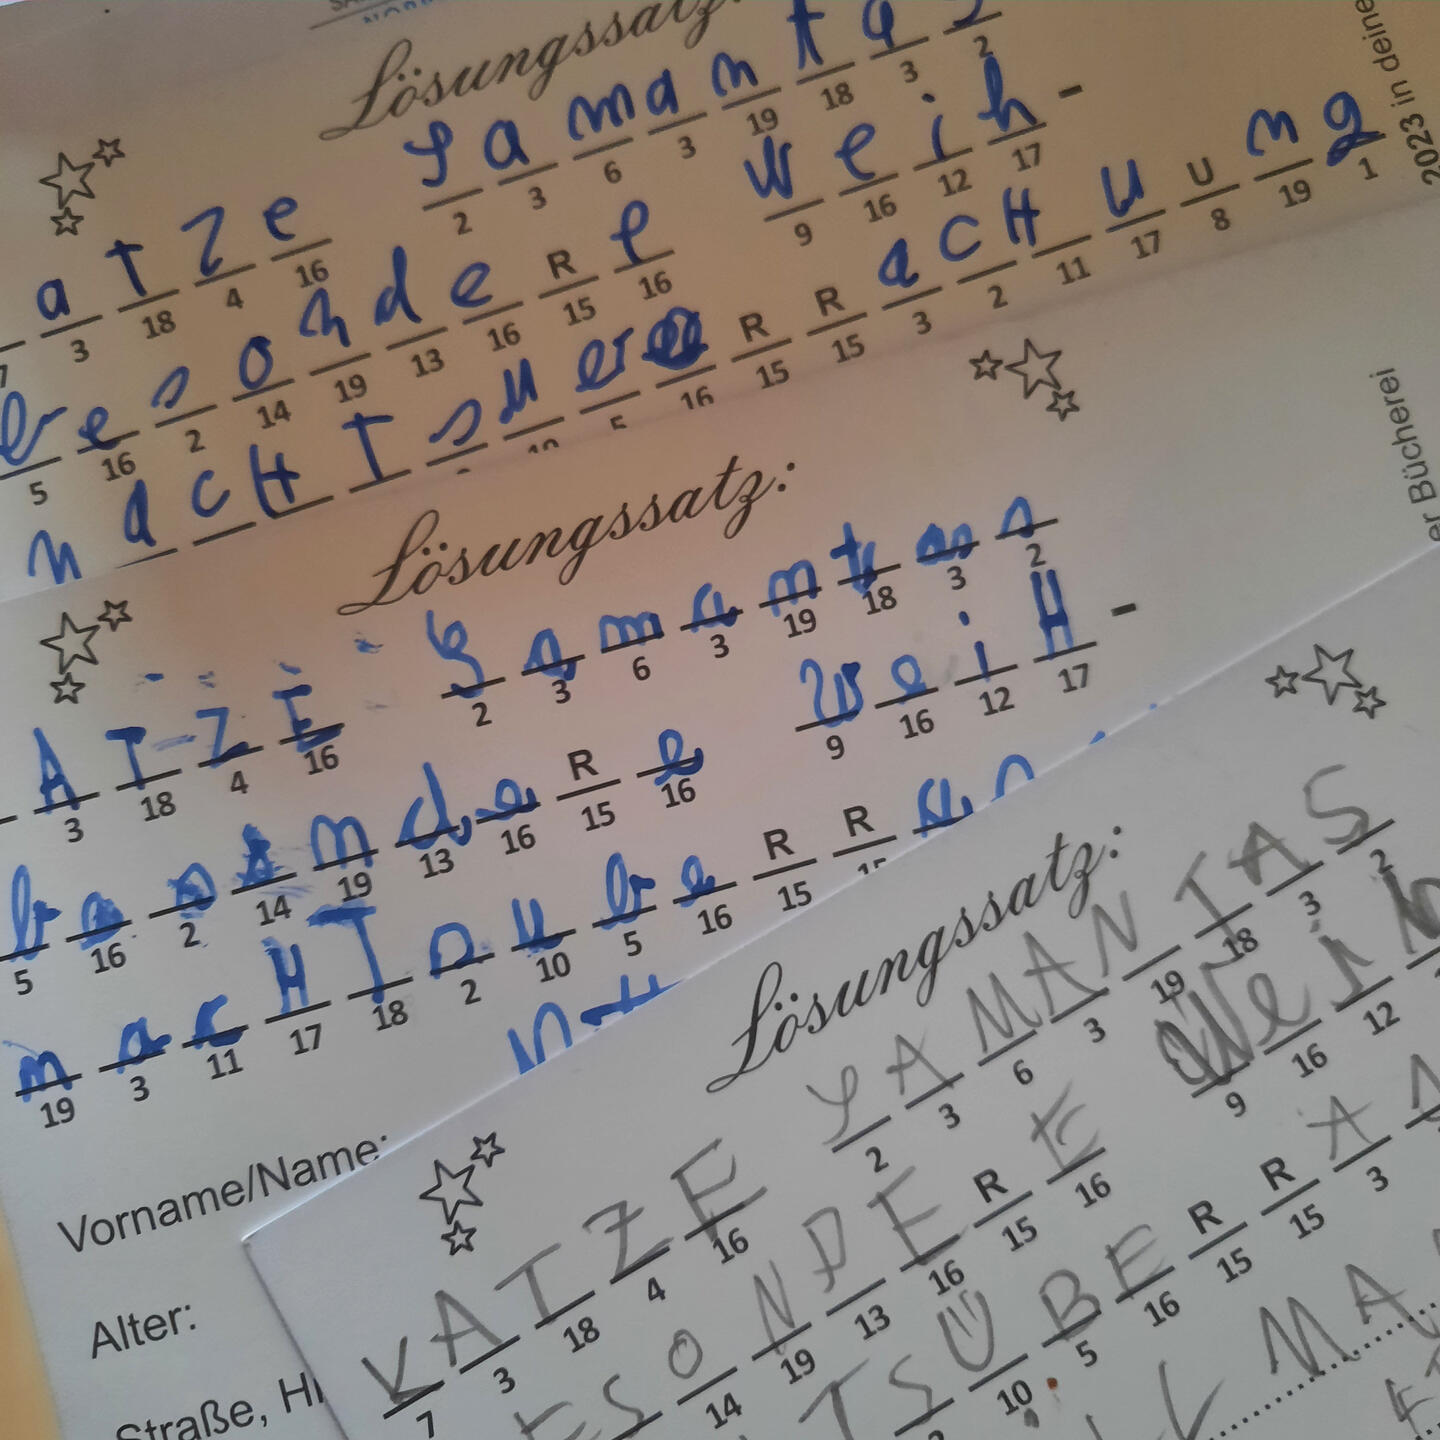 Lösungssatz:
a T Z e Samantas
3 18 4 16 2 3 6 3 19 18 3 2
besondeRe Weih-
5 16 2 14 19 13 16 15 16 9 16 12 17
nacHTsu RRacHuUng
5 16 15 15 3 2 11 17 8 19 1
2023 in deine
Lösungssatz:
ATZE Samantas
3 18 4 16 2 3 6 3 19 18 3 2
besondeRe WeiH-
5 16 2 14 19 13 16 15 16 9 16 12 17
nacHTsubeRR
19 3 11 17 18 2 10 5 16 15 15
er Bücherei
Vorname/Name:
Alter:
Straße, H
Lösungssatz:
KATZE SAMANTAS
7 3 18 4 16 2 3 6 3 19 18 3 2
ESONDERE Weih
14 19 13 16 15 16 9 16 12
TSÜBERRA
10 5 16 15 15 3
MA